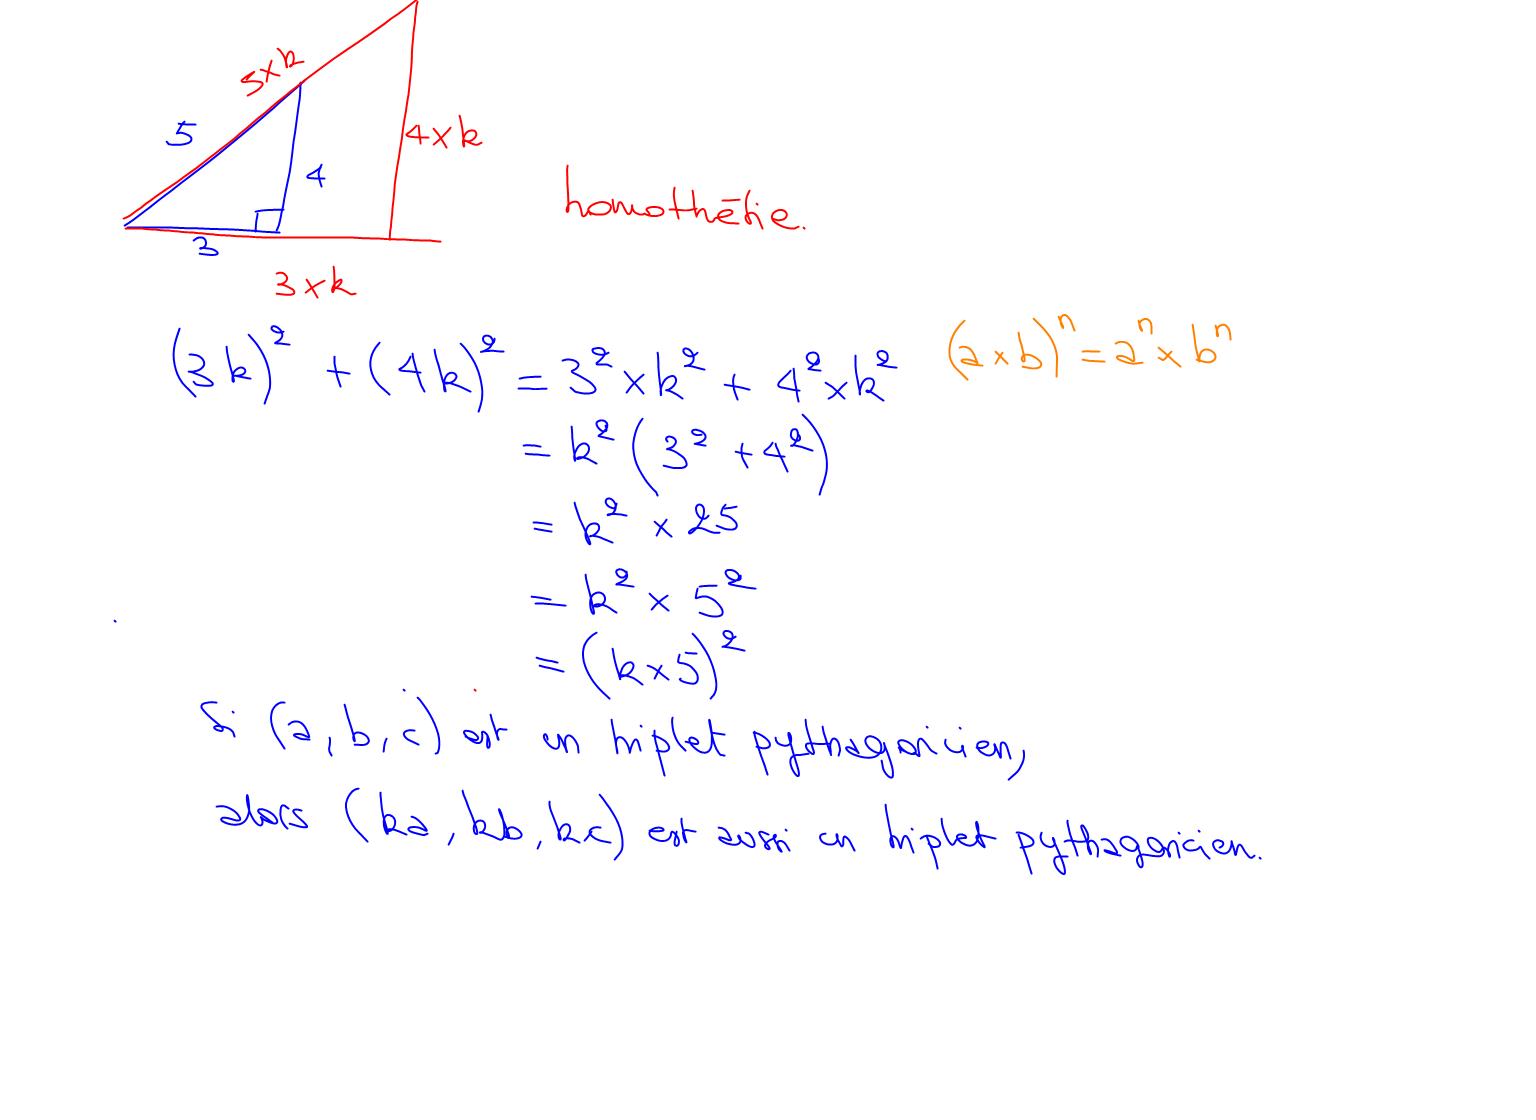 5×k
5
4×k
4
homothētie.
3
3×k
(3k)² + (4k)² = 3² × k² + 4² × k²
(a × b)ⁿ = aⁿ × bⁿ
= k² (3² + 4²)
= k² × 25
= k² × 5²
= (k × 5)²
Si (a, b, c) est un triplet pythagoricien,
alors (ka, kb, kc) est aussi un triplet pythagoricien.